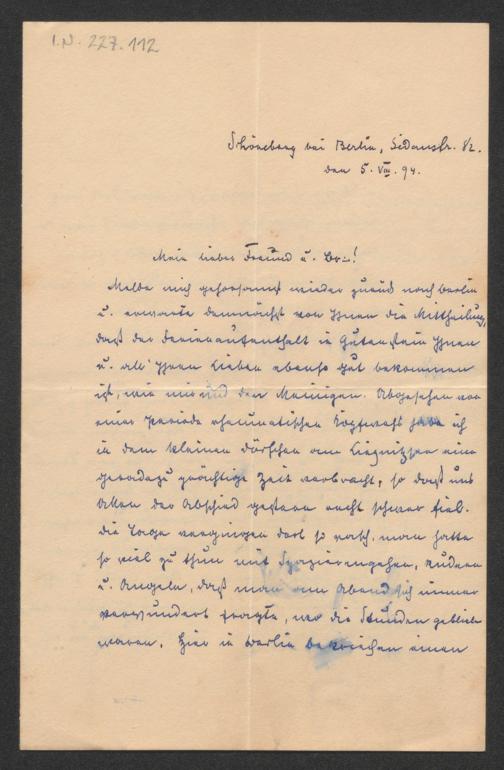 I.N. 227.112
Schöneberg bei Berlin, Sedanstr. 82.
den 5. VIII. 94.
Mein lieber Freund u. Br∴!
Melde mich gehorsamst wieder zurück nach Berlin
u. erwarte demnächst von Ihnen die Mittheilung,
daß der Ferienaufenthalt in Gutenstein Ihnen
u. all' Ihren Lieben ebenso gut bekommen
ist, wie mir und den Meinigen. Abgesehen von
einer Periode rheumatischen Kopfwehs habe ich
in dem kleinen Dörfchen am Liepnitzsee eine
geradezu prächtige Zeit verbracht, so daß uns
Allen der Abschied gestern recht schwer fiel.
Die Tage vergingen dort so rasch, man hatte
so viel zu thun mit Spazierengehen, Rudern
u. Angeln, daß man am Abend sich immer
verwundert fragte, wo die Stunden geblieben
waren. Hier in Berlin beschleichen einen